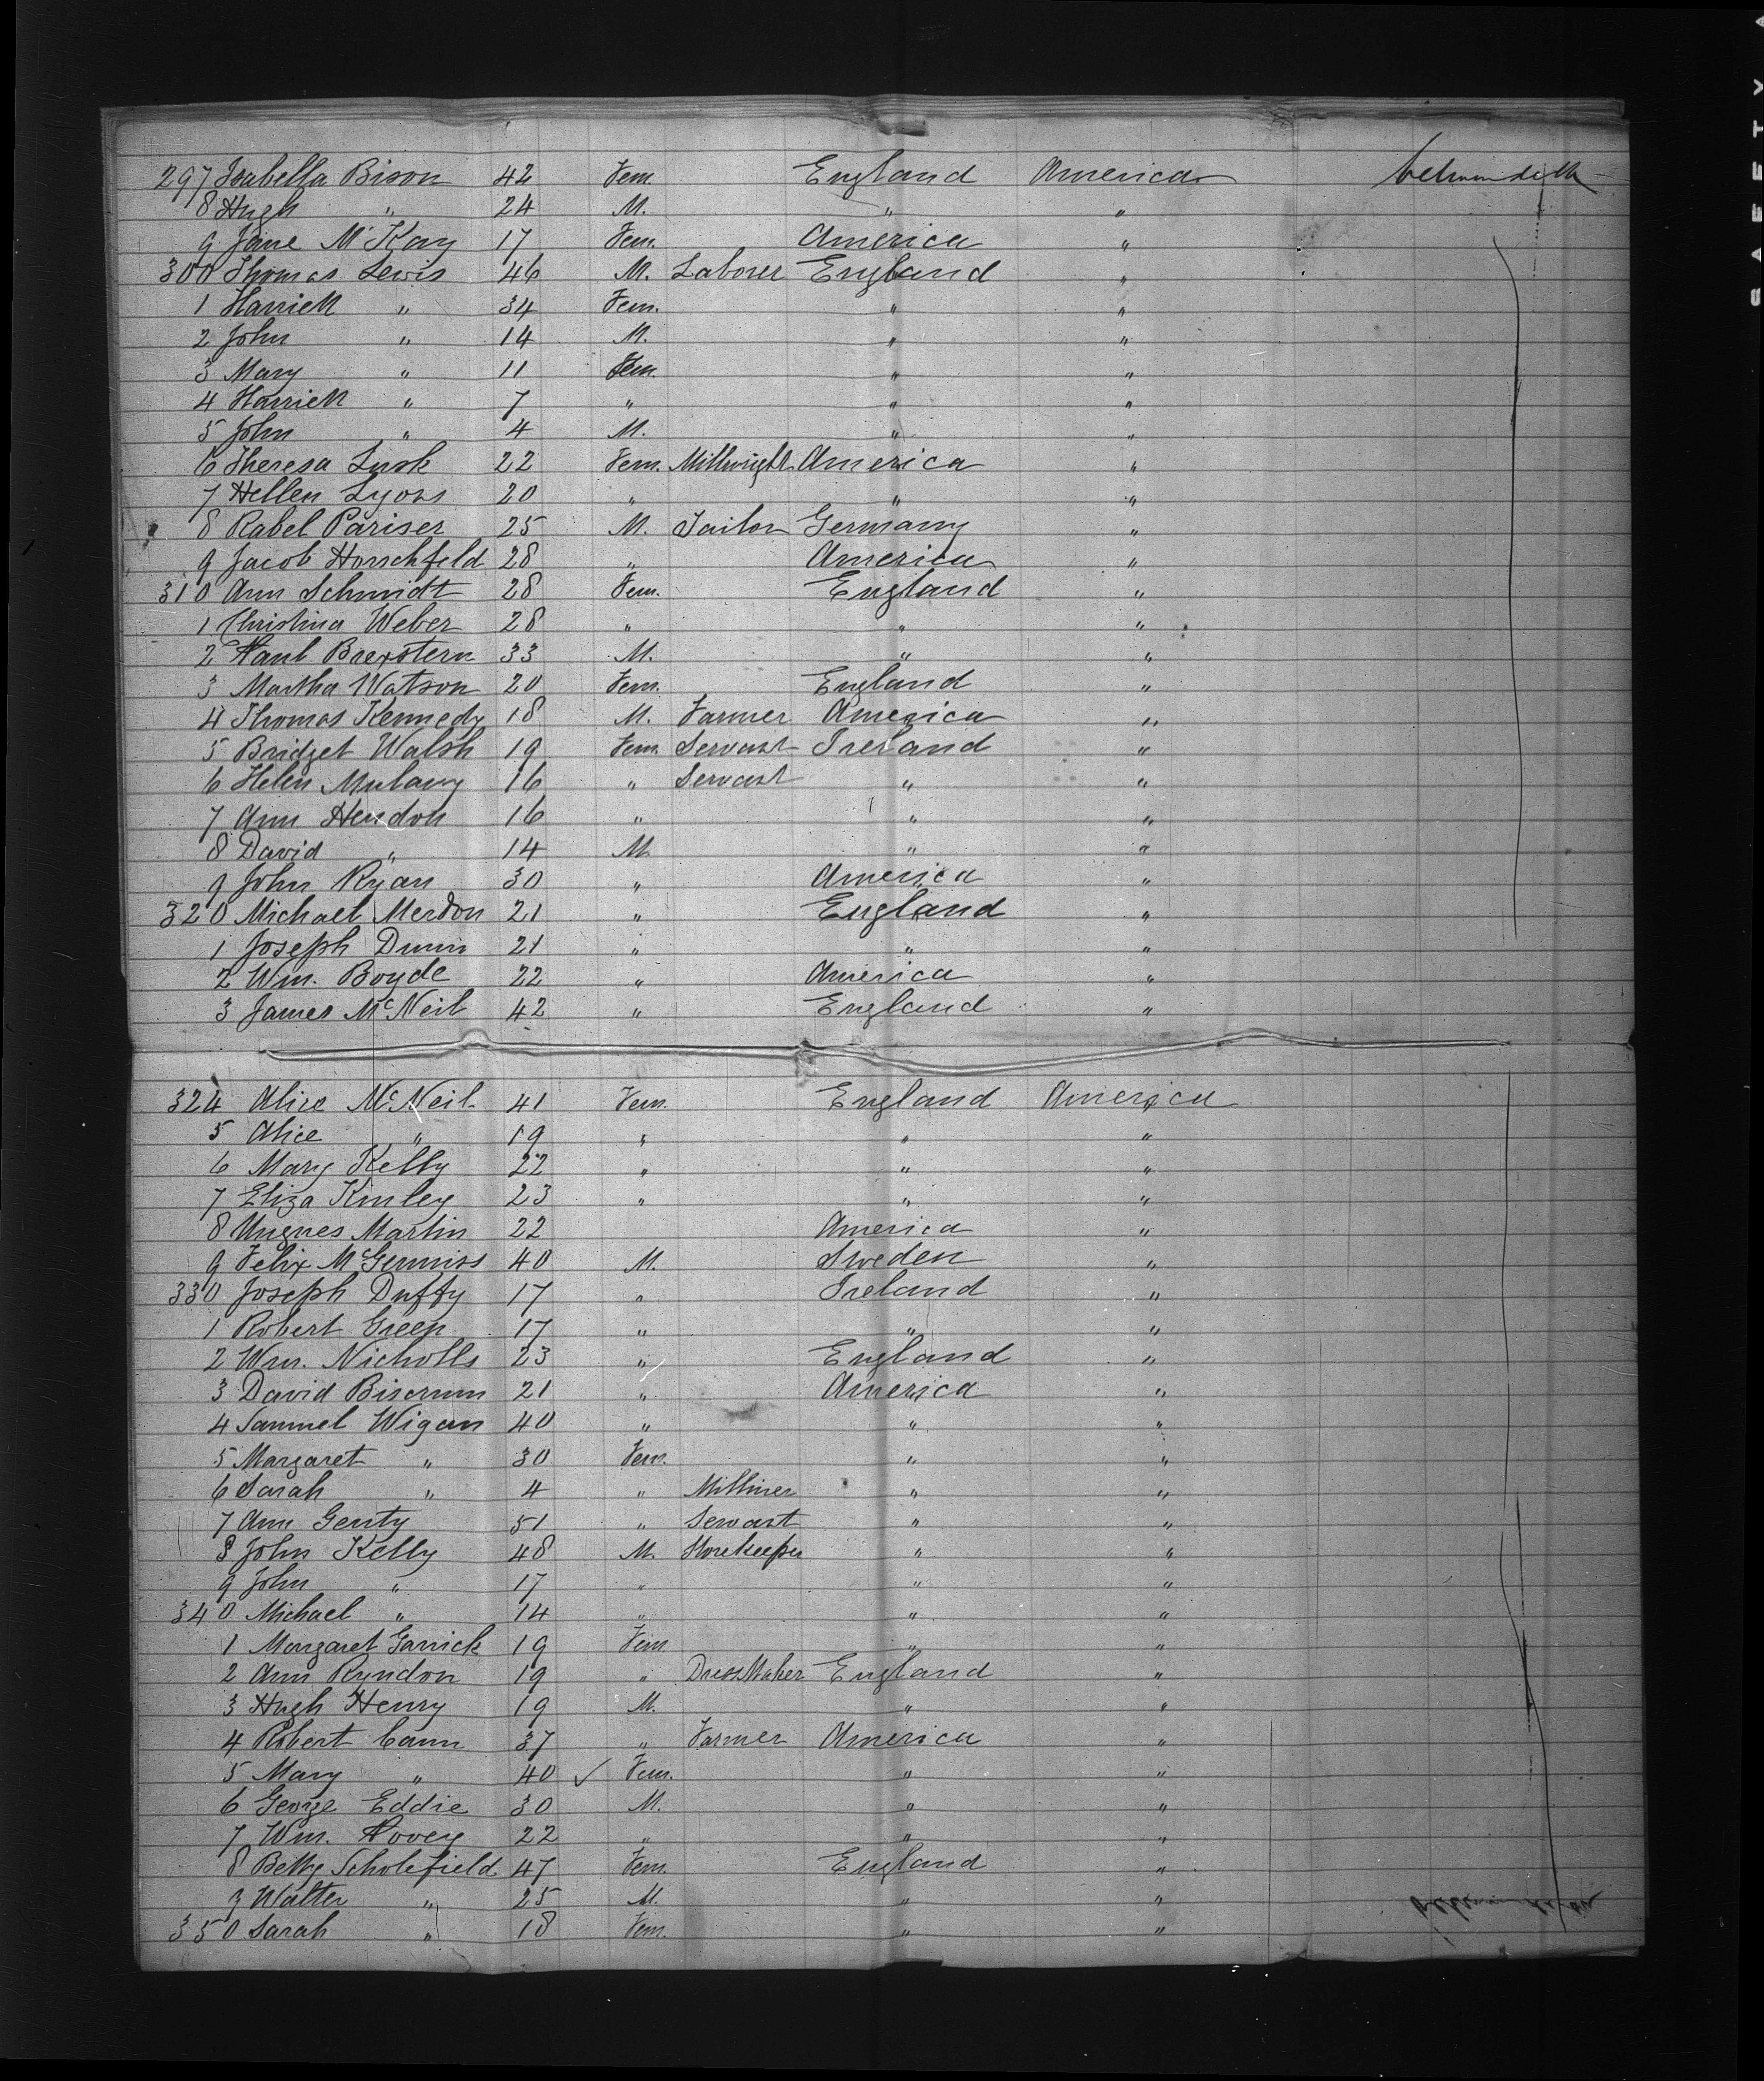 297 Isabella Bison 42 Fem. England America
8 Hugh " 24 M. " "
9 Jane McKay 17 Fem. America "
300 Thomas Lewis 46 M. Laborer England "
1 Harriett " 34 Fem. " "
2 John " 14 M. " "
3 Mary " 11 Fem. " "
4 Harriett " 7 " " "
5 John " 4 M. " "
6 Theresa Lusk 22 Fem. Millwright America "
7 Hellen Lyons 20 " " "
8 Rabel Pariser 25 M. Tailor Germany "
9 Jacob Horschfeld 28 " America "
310 Ann Schmidt 28 Fem. England "
1 Christina Weber 28 " " "
2 Paul 33 M. " "
3 Martha Watson 20 Fem. England "
4 Thomas Kennedy 18 M. Farmer America "
5 Bridget Walsh 19 Fem. Servant Ireland "
6 Helen Mulany 16 " Servant " "
7 Ann Hendon 16 " " "
8 David " 14 M. " "
9 John Ryan 30 " America "
320 Michael Merdon 21 " England "
1 Joseph Dunn 21 " " "
2 Wm. Boyde 22 " America "
3 James McNeil 42 " England "
324 Alice McNeil 41 Fem. England America
5 Alice " 19 " " "
6 Mary Kelly 22 " " "
7 Eliza Kinley 23 " " "
8 Ungnes Martin 22 America "
9 Felix McGenniss 40 M. Sweden "
330 Joseph Duffy 17 " Ireland "
1 Robert Green 17 " " "
2 Wm. Nicholls 23 " England "
3 David 21 " America "
4 Samuel Wigan 40 " " "
5 Margaret " 30 Fem. " "
6 Sarah " 4 " Milliner " "
7 Ann Genty 51 " Servant " "
8 John Kelly 48 M. Storekeeper " "
9 John " 17 " " "
340 Michael " 14 " " "
1 Margaret Garrick 19 Fem " "
2 Ann Ryndon 19 " Dress Maker England "
3 Hugh Henry 19 M. " "
4 Robert Cann 37 " Farmer America "
5 Mary " 40 ✓ Fem. " "
6 George Eddie 30 M. " "
7 Wm. Hovey 22 " " "
8 Betty Scholefield 47 Fem. England "
9 Walter " 25 M. " "
350 Sarah " 18 Fem. " "